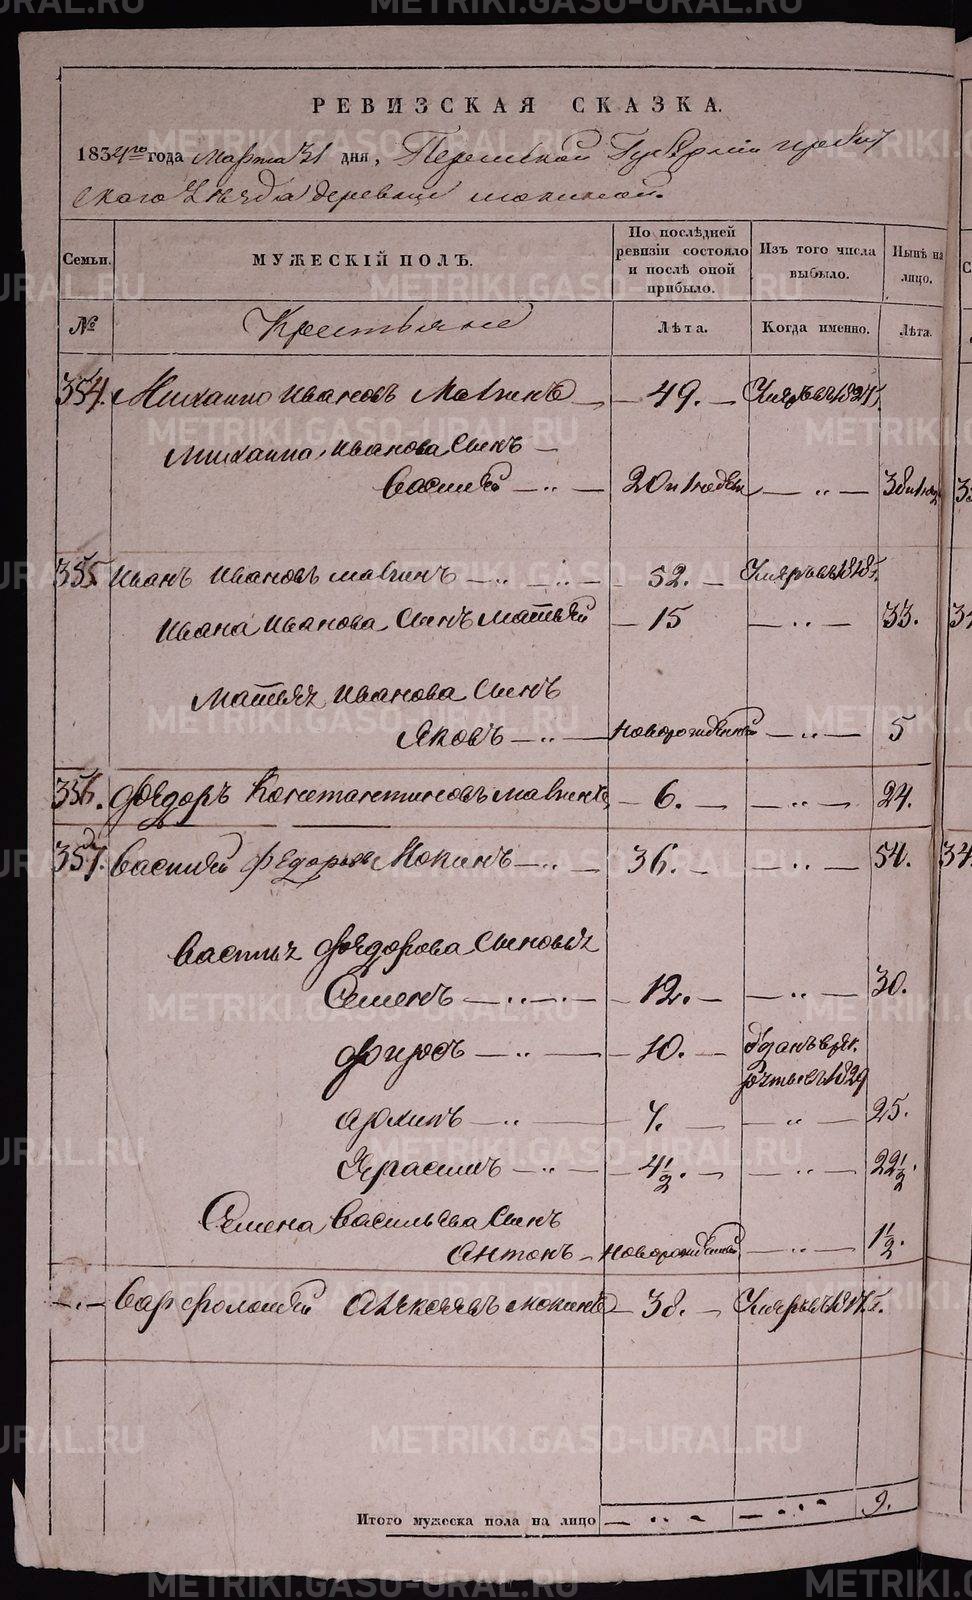 РЕВИЗСКАЯ СКАЗКА.
1834го года марта 31 дня, Пермской Губернии Ирбит
ского Уезда деревни мокиной.
Семьи.
МУЖЕСКІЙ ПОЛЪ.
По послѣдней ревизіи состояло и послѣ оной прибыло.
Изъ того числа выбыло.
Нынѣ на лицо.
№
Крестьяне
Лѣта.
Когда именно.
Лѣта.
354. Михаило Ивановъ Мавринъ — 49. — Умеръ въ 1827г.
Михаила Иванова Сынъ —
Василей — 20 — „ — 38
355. Иванъ Ивановъ мавринъ — 52. — Умеръ въ 1818г.
Ивана Иванова Сынъ матвей — 15 — „ — 33.
Матвея Иванова Сынъ
Яковъ — новорожденный — „ — 5
356. Федоръ Константиновъ мавринъ — 6. — „ — 24.
357. Василей Федоровъ Мокинъ — 36. — „ — 54.
Василья Федорова Сыновья
Семенъ — 12. — „ — 30.
Фирсъ — 10. — Отданъ въ рек
руты въ 1829
архипъ — 7. — „ — 25.
Герасимъ — 4 1/2. — „ — 22 1/2.
Семена Васильева Сынъ
Антонъ — новорожденный — „ — 1 1/2.
— „ — Варфоломей Алексеевъ мокинъ — 38. — Умеръ въ 1817.г.
Итого мужеска пола на лицо — „ — „ — 9.
METRIKI.GASO-URAL.RU